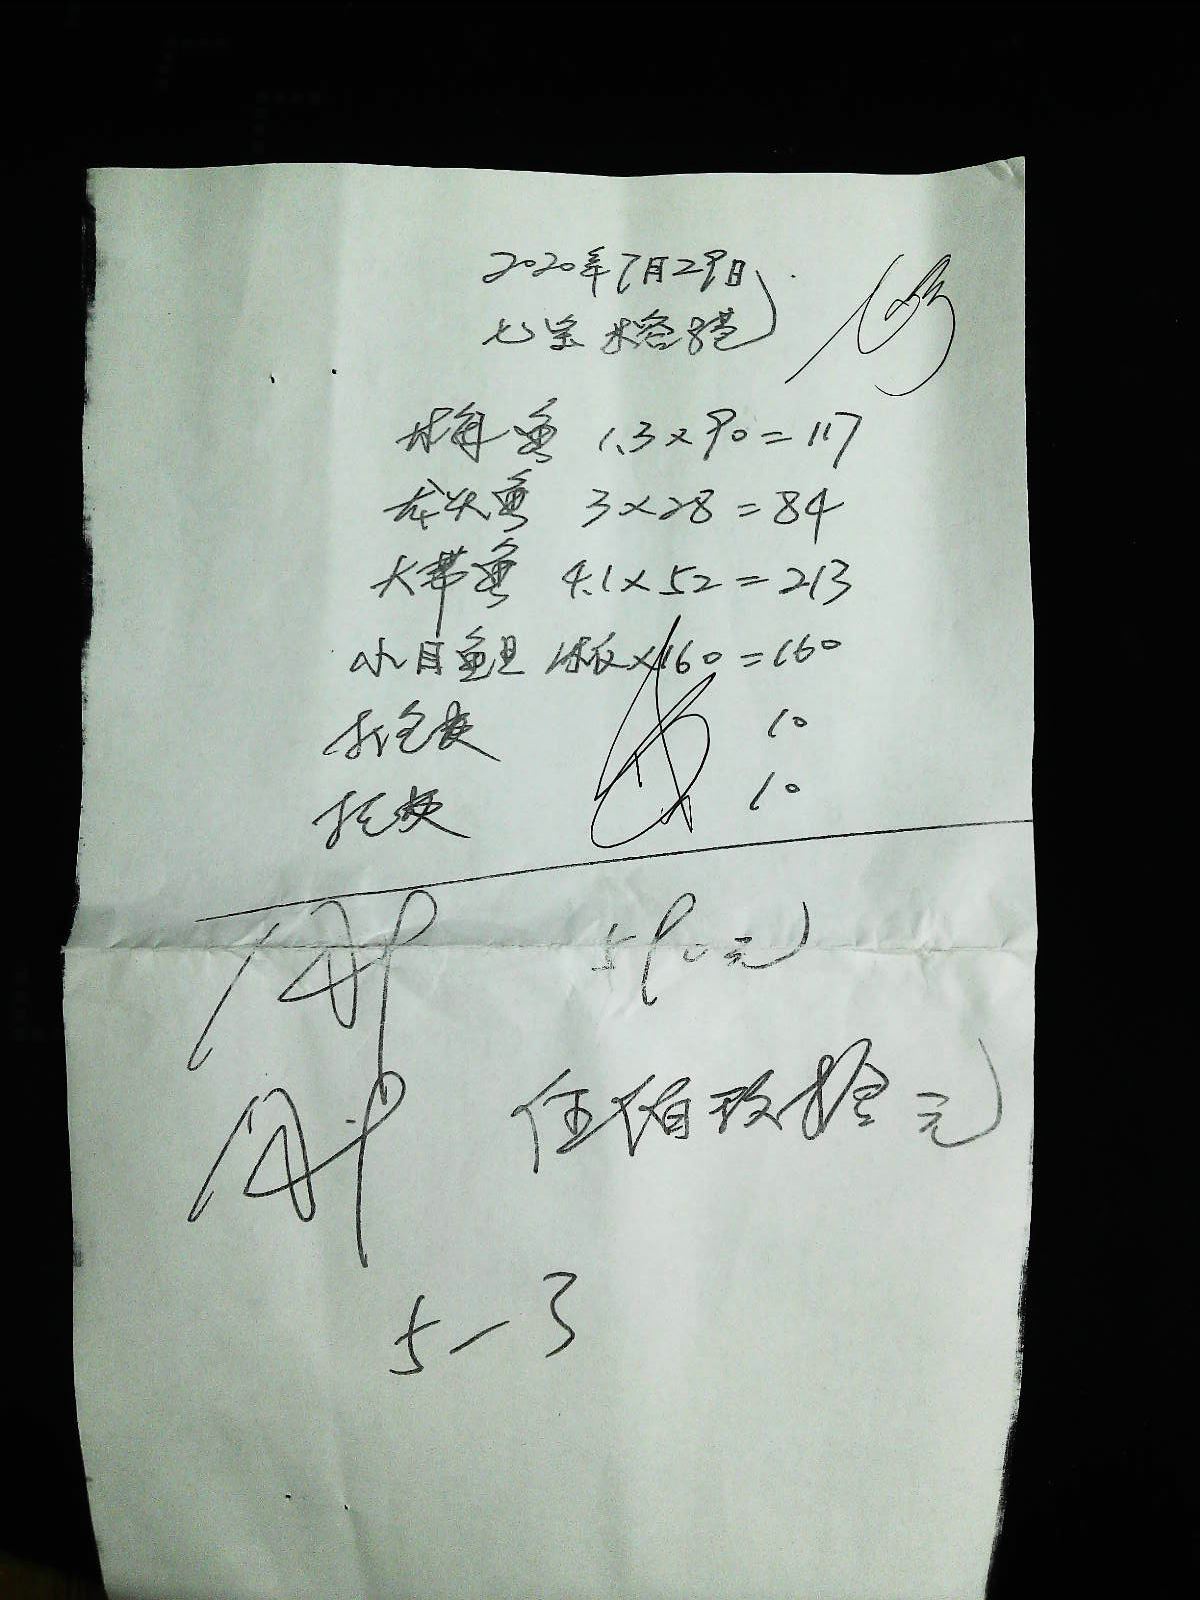 2020年7月29日
七宝 榕港
梅鱼 1.3×90=117
龙头鱼 3×28=84
大带鱼 4.1×52=213
小目鱼旦 1板×160=160
打包费 10
托费 10
590元
伍佰玖拾元
5-3